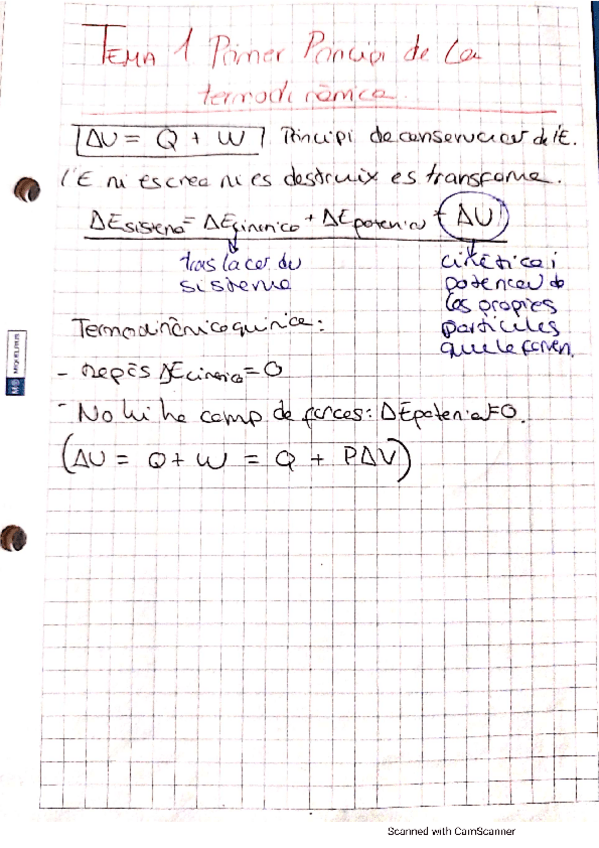 TEMA 1 Primer Principi de la
termodinàmica.
ΔU = Q + W Principi de conservacio de l'E.
l'E ni es crea ni es destruix es transforma.
ΔEsistema = ΔEcinènica + ΔEpotencial + ΔU
traslacio del
sistema
cinètica i
potencial de
les propies
particules
que le formen.
Termodinàmica quimica:
- Repòs ΔEcinènica = 0
- No hi ha camp de forces: ΔEpotencial = 0.
(ΔU = Q + W = Q + PΔV)
MIQUELRIUS
Scanned with CamScanner